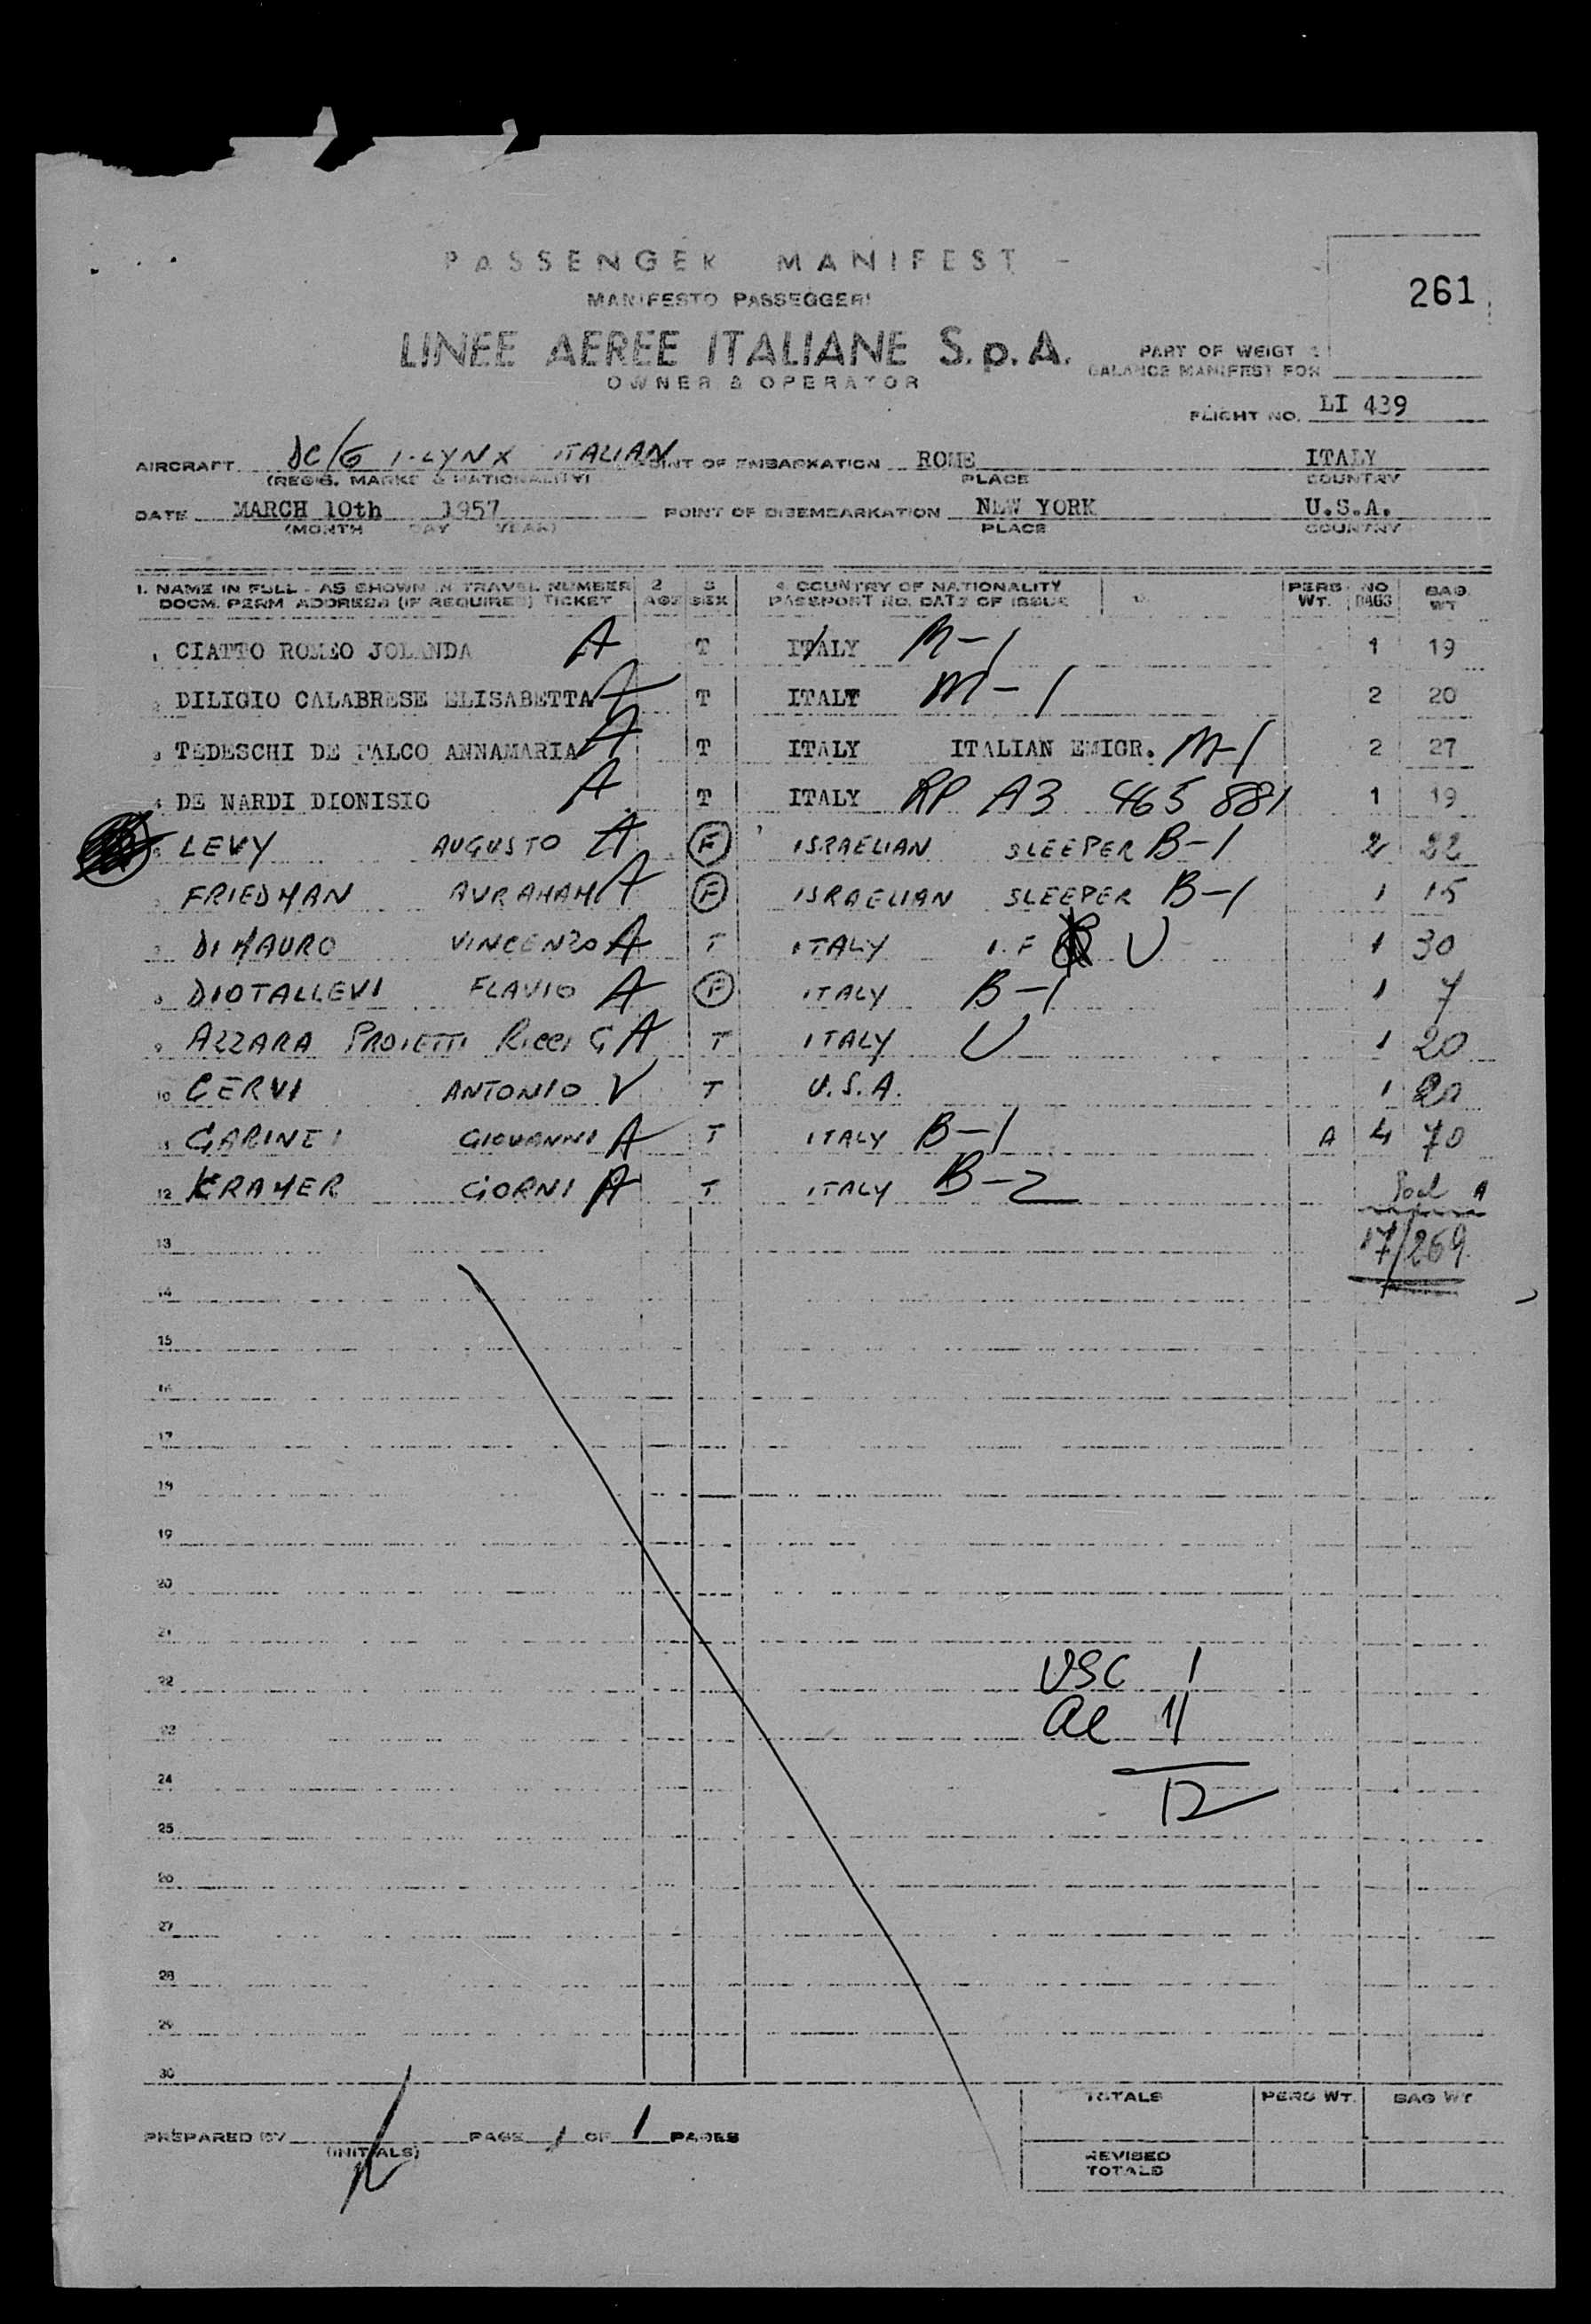 PASSENGER MANIFEST
MANIFESTO PASSEGGERI
261
LINEE AEREE ITALIANE S.p.A.
OWNER & OPERATOR
PART OF WEIGT &
BALANCE MANIFEST FOR
FLIGHT NO. LI 439
AIRCRAFT DC/6 I-LYNX ITALIAN POINT OF EMBARKATION ROME ITALY
(REG'G. MARKS & NATIONALITY) PLACE COUNTRY
DATE MARCH 10th 1957 POINT OF DISEMBARKATION NEW YORK U.S.A.
(MONTH DAY YEAR) PLACE COUNTRY
1. NAME IN FULL - AS SHOWN IN TRAVEL NUMBER 2 3 4. COUNTRY OF NATIONALITY PERS NO BAG.
DOCM. PERM ADDRESS (IF REQUIRED) TICKET AGE SEX PASSPORT NO. DATE OF ISSUE WT. BAGS WT
1 CIATTO ROMEO JOLANDA A T ITALY M-1 1 19
2 DILIGIO CALABRESE ELISABETTA A T ITALY M-1 2 20
3 TEDESCHI DE FALCO ANNAMARIA A T ITALY ITALIAN EMIGR. M-1 2 27
4 DE NARDI DIONISIO A T ITALY RP A3 465 881 1 19
5 LEVY AUGUSTO A F ISRAELIAN SLEEPER B-1 2 22
FRIEDMAN AVRAHAM A F ISRAELIAN SLEEPER B-1 1 15
7 DI MAURO VINCENZO A T ITALY I.F U 1 30
8 DIOTALLEVI FLAVIO A F ITALY B-1 1 7
9 AZZARA PROIETTI RICCI G A T ITALY U 1 20
10 CERVI ANTONIO V T U.S.A. 1 20
11 GARINEI GIOVANNI A T ITALY B-1 A 4 70
12 KRAMER GORNI A T ITALY B-2 Pool A
13 17/269
14
15
16
17
18
19
20
21
22 USC 1
23 Al 11
24 12
25
26
27
28
29
30
TOTALS PERS WT. BAG WT
PREPARED BY PAGE 1 OF 1 PAGES
(INITIALS)
REVISED
TOTALS